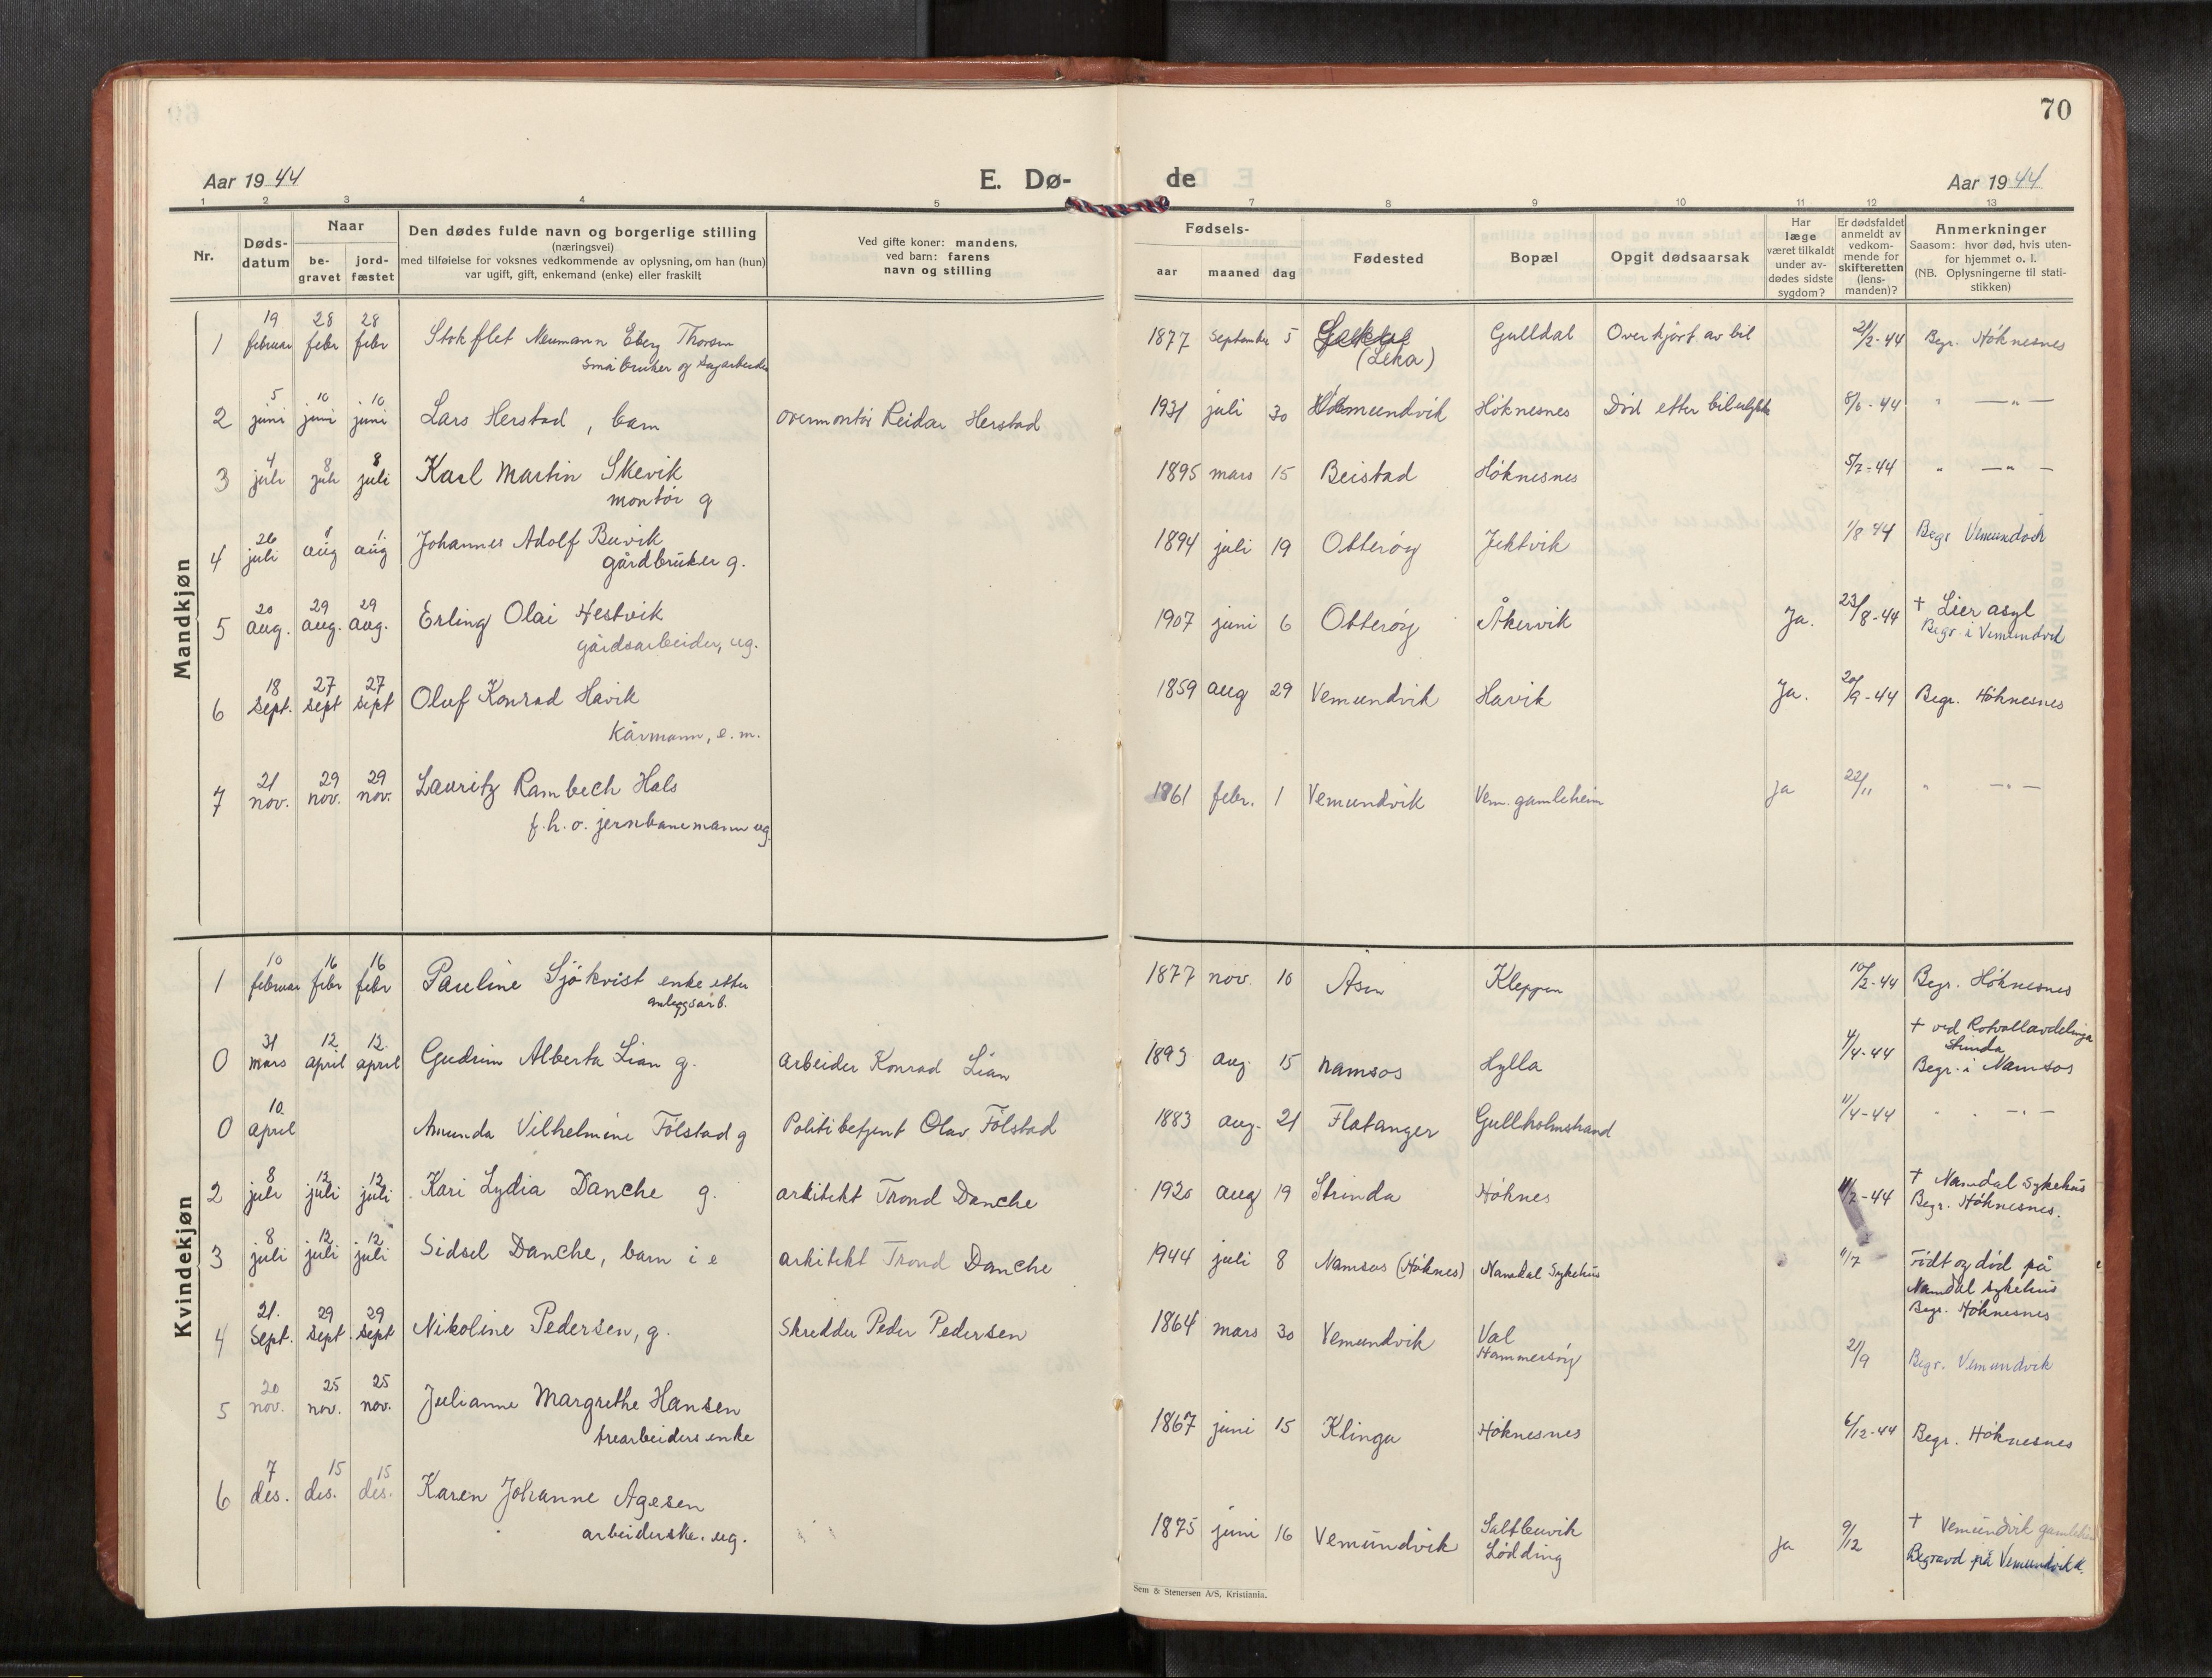 70
Aar 1944
E. Dø-
de
Aar 1944
1 2 3 4 5 7 8 9 10 11 12 13
Nr.
Døds-
datum
Naar
be-
gravet
jord-
fæstet
Den dødes fulde navn og borgerlige stilling
(næringsvei)
med tilføielse for voksnes vedkommende av oplysning, om han (hun)
var ugift, gift, enkemand (enke) eller fraskilt
Ved gifte koner: mandens,
ved barn: farens
navn og stilling
Fødsels-
aar maaned dag
Fødested
Bopæl
Opgit dødsaarsak
Har
læge
været tilkaldt
under av-
dødes sidste
sygdom?
Er dødsfaldet
anmeldt av
vedkom-
mende for
skifteretten
(lens-
manden)?
Anmerkninger
Saasom: hvor død, hvis uten-
for hjemmet o. l.
(NB. Oplysningerne til stati-
stikken)
Mandkjøn
1 19 februar 28 febr 28 febr Stokflet Neumann Eberg Thorsen
Småbruker og
1877 September 5 (Leka) Gulldal Overkjørt av bil 21/2-44 Begr. Høknesnes
2 5 juni 10 juni 10 juni Lars Herstad, barn overmontør Reidar Herstad 1931 juli 30 Vemundvik Høknesnes Død etter bilulykke 8/6-44 " —"—
3 4 juli 8 juli 8 juli Karl Martin Skevik
montør g
1895 mars 15 Beistad Høknesnes 5/7-44 " —"—
4 26 juli 1 aug 1 aug Johannes Adolf Buvik
gårdbruker g.
1894 juli 19 Otterøy Jektvik 1/8 44 Begr Vemundvik
5 20 aug. 29 aug. 29 aug. Erling Olai Hestvik
gårdsarbeider, ug.
1907 juni 6 Otterøy Åkervik Ja. 23/8-44 + Lier asyl
Begr. i Vemundvik
6 18 sept. 27 sept 27 sept Oluf Konrad Havik
Kårmann, e.m.
1859 aug 29 Vemundvik Havik Ja. 20/9-44 Begr. Høknesnes
7 21 nov. 29 nov. 29 nov. Lauritz Rambech Hals
f.h.v. jernbanemann ug.
1861 febr. 1 Vemundvik Vem. gamleheim Ja 22/11 " —"—
Kvindekjøn
1 10 februar 16 febr 16 febr Pauline Sjøkvist enke etter
anleggsarb.
1877 nov. 10 Åsen Kleppen 10/2-44 Begr. Høknesnes
0 31 mars 12 april 12. april Gudrun Alberta Lian g. arbeider Konrad Lian 1893 aug. 15 Namsos Hylla 4/4-44 + ved Rotvollavdelinga
Strinda
Begr. i Namsos
0 10. april Amunda Vilhelmine Følstad g Politibetjent Olav Følstad 1883 aug. 21 Flatanger Gullholmstrand 11/4-44 " " —"—
2 8 juli 12 juli 12 juli Kari Lydia Danche g. arkitekt Trond Danche 1920 aug 19 Strinda Høknes 11/7-44 + Namdal Sykehus
Begr. Høknesnes.
3 8 juli 12 juli 12 juli Sidsel Danche, barn i e arkitekt Trond Danche 1944 juli 8 Namsos (Høknes) Namdal Sykehus 11/7 Født og død på
Namdal sykehus
Begr. Høknesnes
4 21. Sept. 29 sept. 29 sept Nikoline Pedersen, g. Skredder Peder Pedersen 1864 mars 30 Vemundvik Val
Hammersøy
21/9 Begr. Vemundvik
5 20 nov. 25 nov. 25 nov. Julianne Margrethe Hansen
trearbeiders enke
1867 juni 15 Klinga Høknesnes 6/12-44 Begr. Høknesnes
6 7 des. 15 des. 15 des. Karen Johanne Agesen
arbeiderske. ug.
1875 juni 16 Vemundvik Saltbuvik
Lødding
Ja 9/12 + Vemundvik gamleheim
Begravd på Vemundvik k.
Sem & Stenersen A/S, Kristiania.